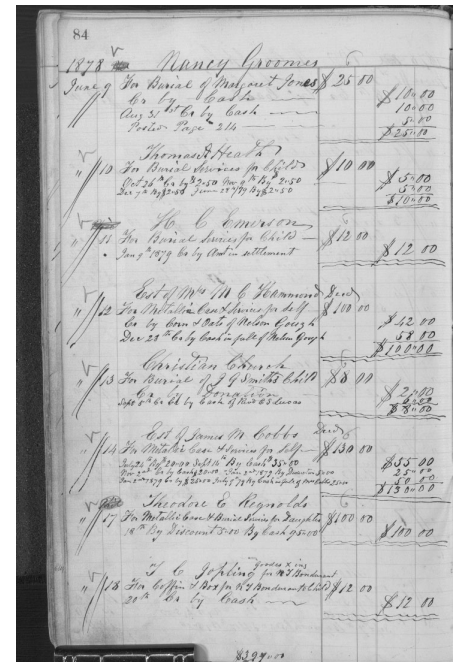 84
1878 Nancy Groomes
June 9 For Burial of Margaret Jones $25 00
Cr by Cash $10.00
Aug 31st Cr by Cash 10.00
Posted Page 214 5.00
$25.00
Thomas A Heath
" 10 For Burial Services for Child $10 00
Oct 26th Cr by $2.50 Nov 9th By 2.50 $5.00
Dec 7th By $2.50 By $2.50 5.00
$10.00
H C Emerson
" 11 For Burial Services for Child $12 00
Jan 9th 1879 Cr by Amt in settlement $12 00
Est of Mrs M C Hammond Decd
" 12 For Metallic Case & Services for Self $100 00
Cr by Corn & Oats of Nelson Gough $42 00
Dec 28th Cr by Cash in full of Nelson Gough 58 00
$100.00
Christian Church
" 13 For Burial of J G Smiths Child $8 00
Cr by Donation $2.00
Sept 5th Cr by Cash of Lucas
$8.00
Est of James M Cobbs Decd
" 14 For Metallic Case & Services for Self $130 00
Sept 16th By Cash 35.00 $55 00
By Cash $20.00 25.00
50 00
$130.00
Theodore E Reynolds
" 17 For Metallic Case & Burial Services for Daughter $100 00
18th By Discount 5.00 By Cash 95.00 $100 00
T C Jopling for N T Bondurant
" 18 For Coffin & Box for N T Bondurants Child $12 00
20th Cr by Cash $12 00
$12 00
$397.00